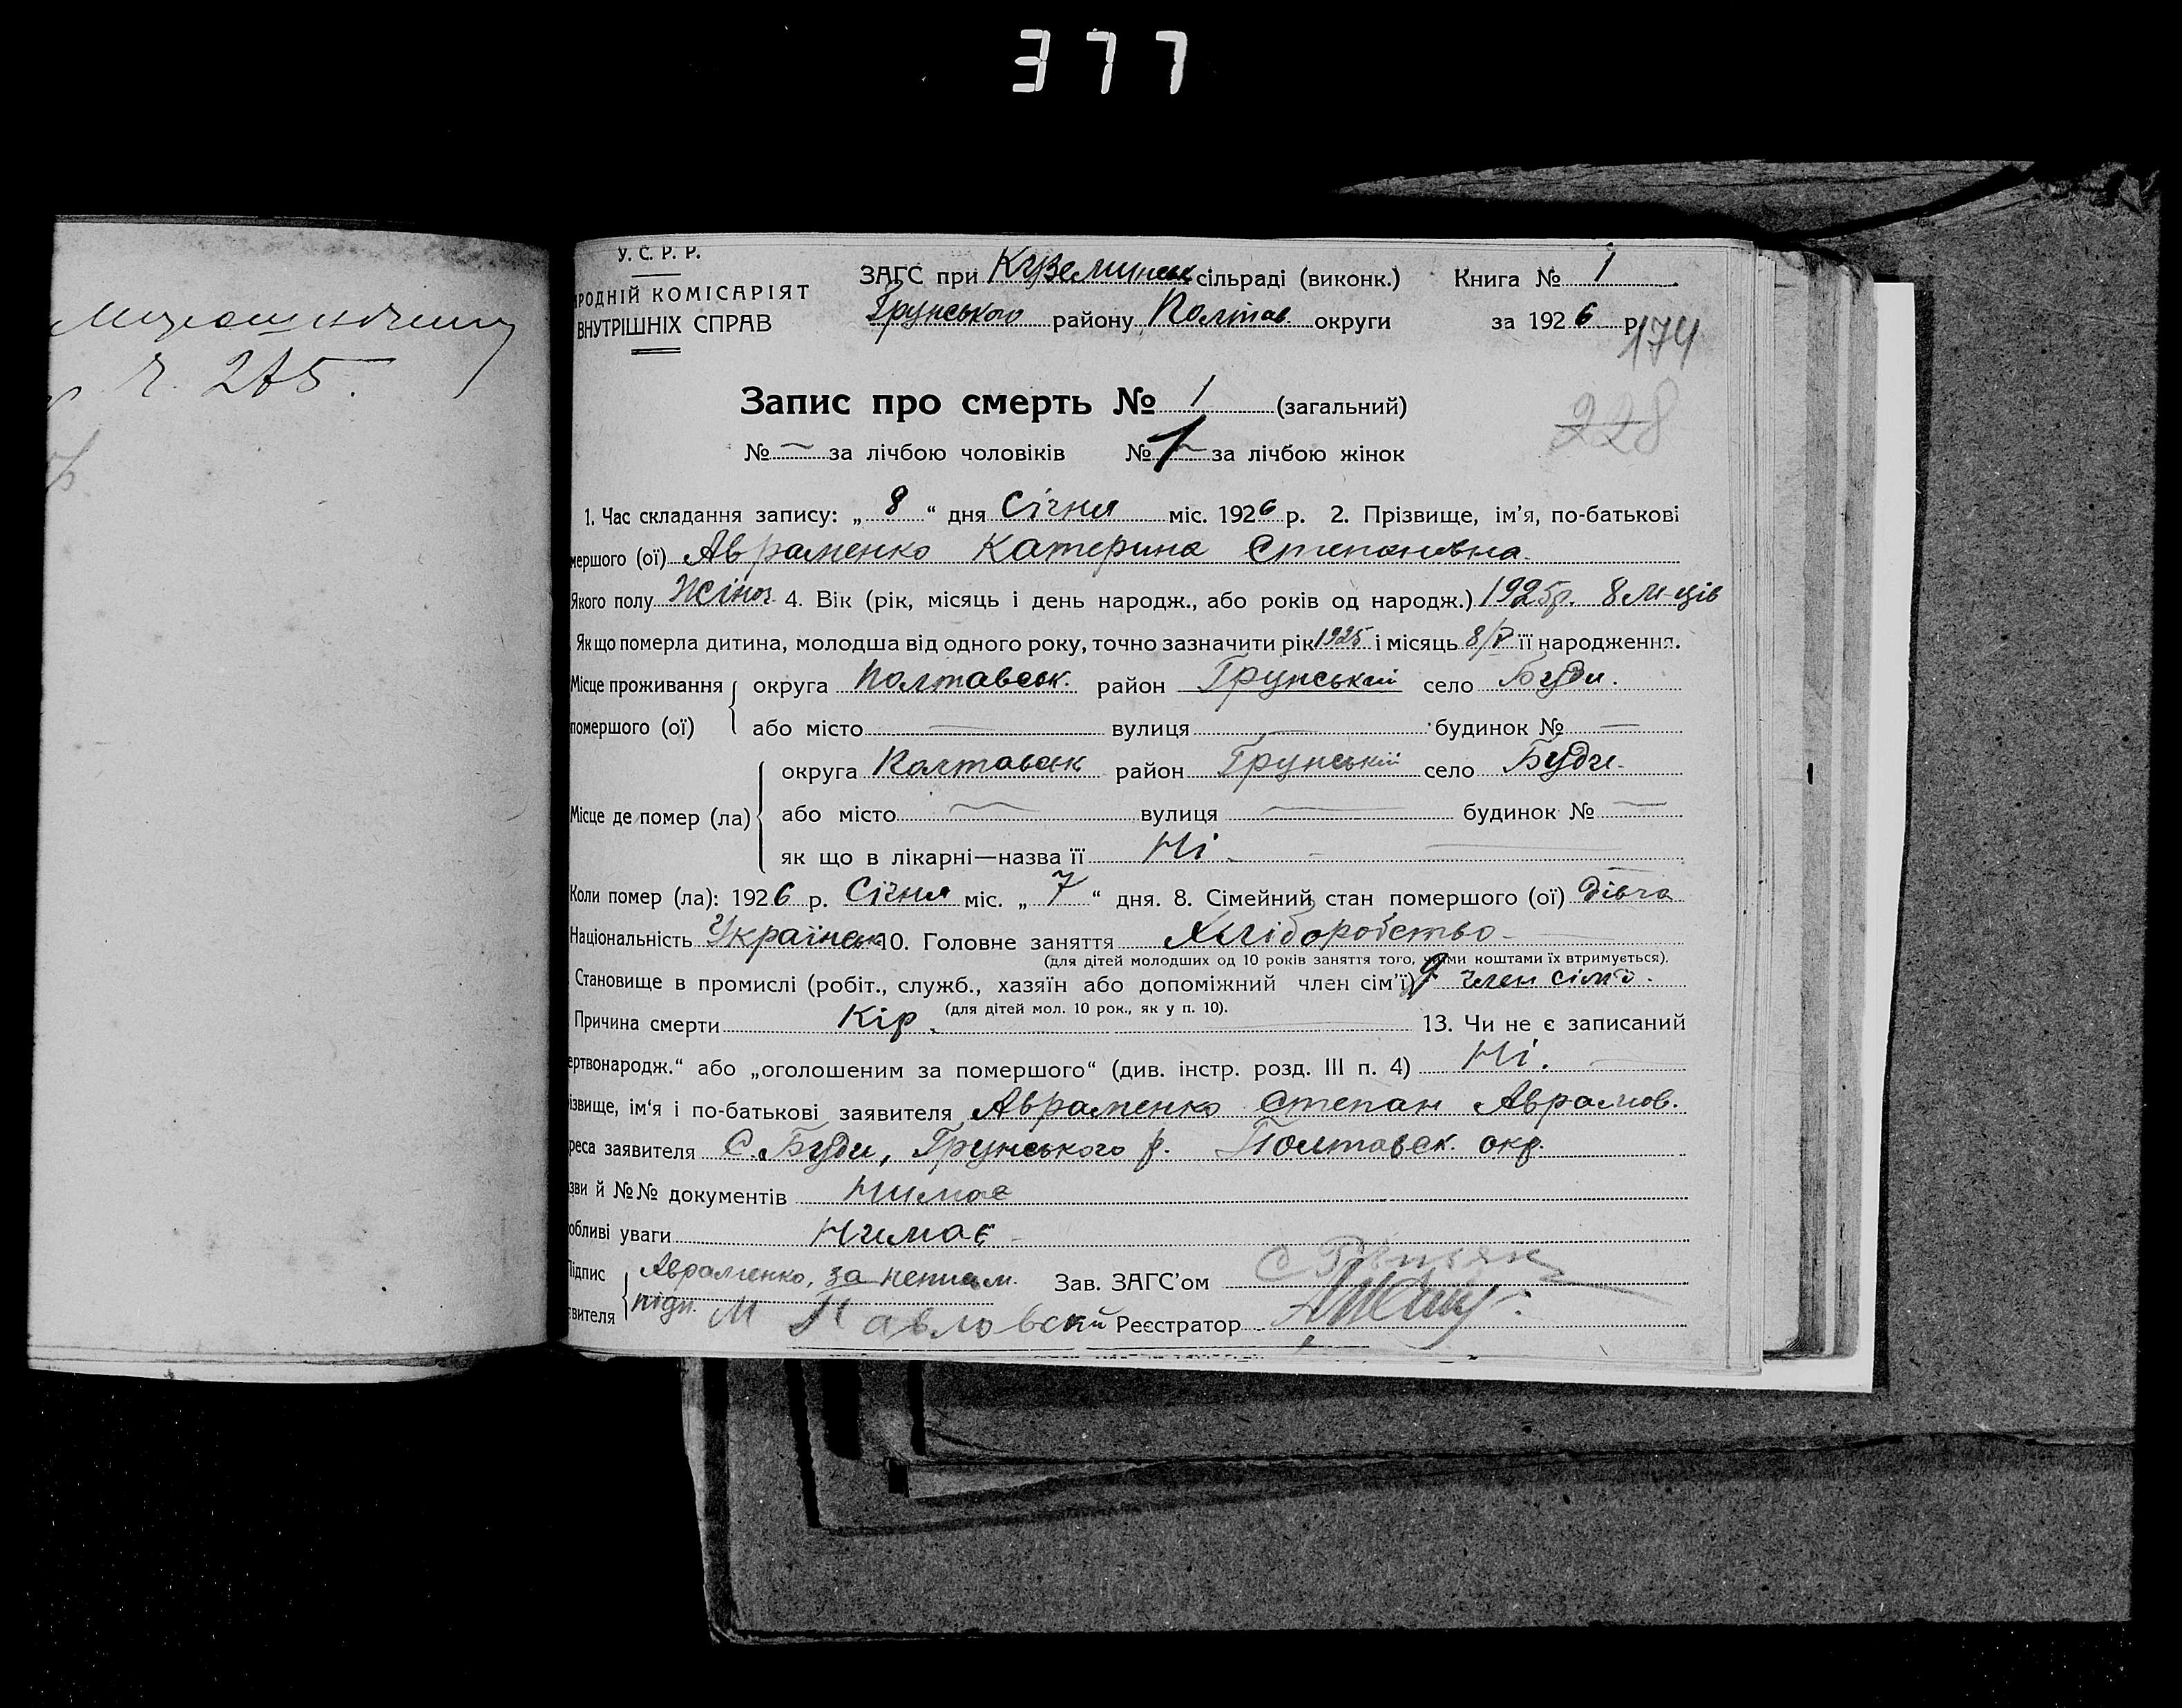 377
ч. 275.
У. С. Р. Р.
РОДНІЙ КОМІСАРІЯТ
ВНУТРІШНІХ СПРАВ
ЗАГС при Куземинськ сільраді (виконк.) Книга № 1
Грунського району Полтав. округи за 1926 р.
174
228
Запис про смерть № 1 (загальний)
№ — за лічбою чоловіків № 1 за лічбою жінок
1. Час складання запису: „ 8 “ дня Січня міс. 1926 р. 2. Прізвище, ім’я, по-батькові
мершого (ої) Авраменко Катерина Степановна
Якого полу Жіноч. 4. Вік (рік, місяць і день народж., або років од народж.) 1925р. 8 м-ців
Якщо померла дитина, молодша від одного року, точно зазначити рік 1925 і місяць 8/V її народження.
Місце проживання округа Полтавськ. район Грунський село Буди.
помершого (ої) або місто — вулиця — будинок № —
округа Полтавськ район Грунській село Буди
Місце де помер (ла) або місто — вулиця — будинок № —
як що в лікарні—назва її Ні
Коли помер (ла): 1926 р. Січня міс. „ 7 “ дня. 8. Сімейний стан помершого (ої) дівча
Національність Українськ 10. Головне заняття Хліборобство
(для дітей молодших од 10 років заняття того, чиїми коштами їх втримується).
Становище в промислі (робіт., служб., хазяїн або допоміжний член сім’ї) член сім'ї.
(для дітей мол. 10 рок., як у п. 10).
Причина смерти Кір. 13. Чи не є записаний
ертвонародж.“ або „оголошеним за помершого“ (див. інстр. розд. III п. 4) Ні.
ізвище, ім‘я і по-батькові заявителя Авраменко Степан Аврамов.
реса заявителя С. Буди, Грунського р. Полтавськ. окр.
зви й №№ документів Нимає
обливі уваги Нимає
Підпис Авраменко, за неписьм. Зав. ЗАГС’ом
явителя підп. М Павловский Реєстратор